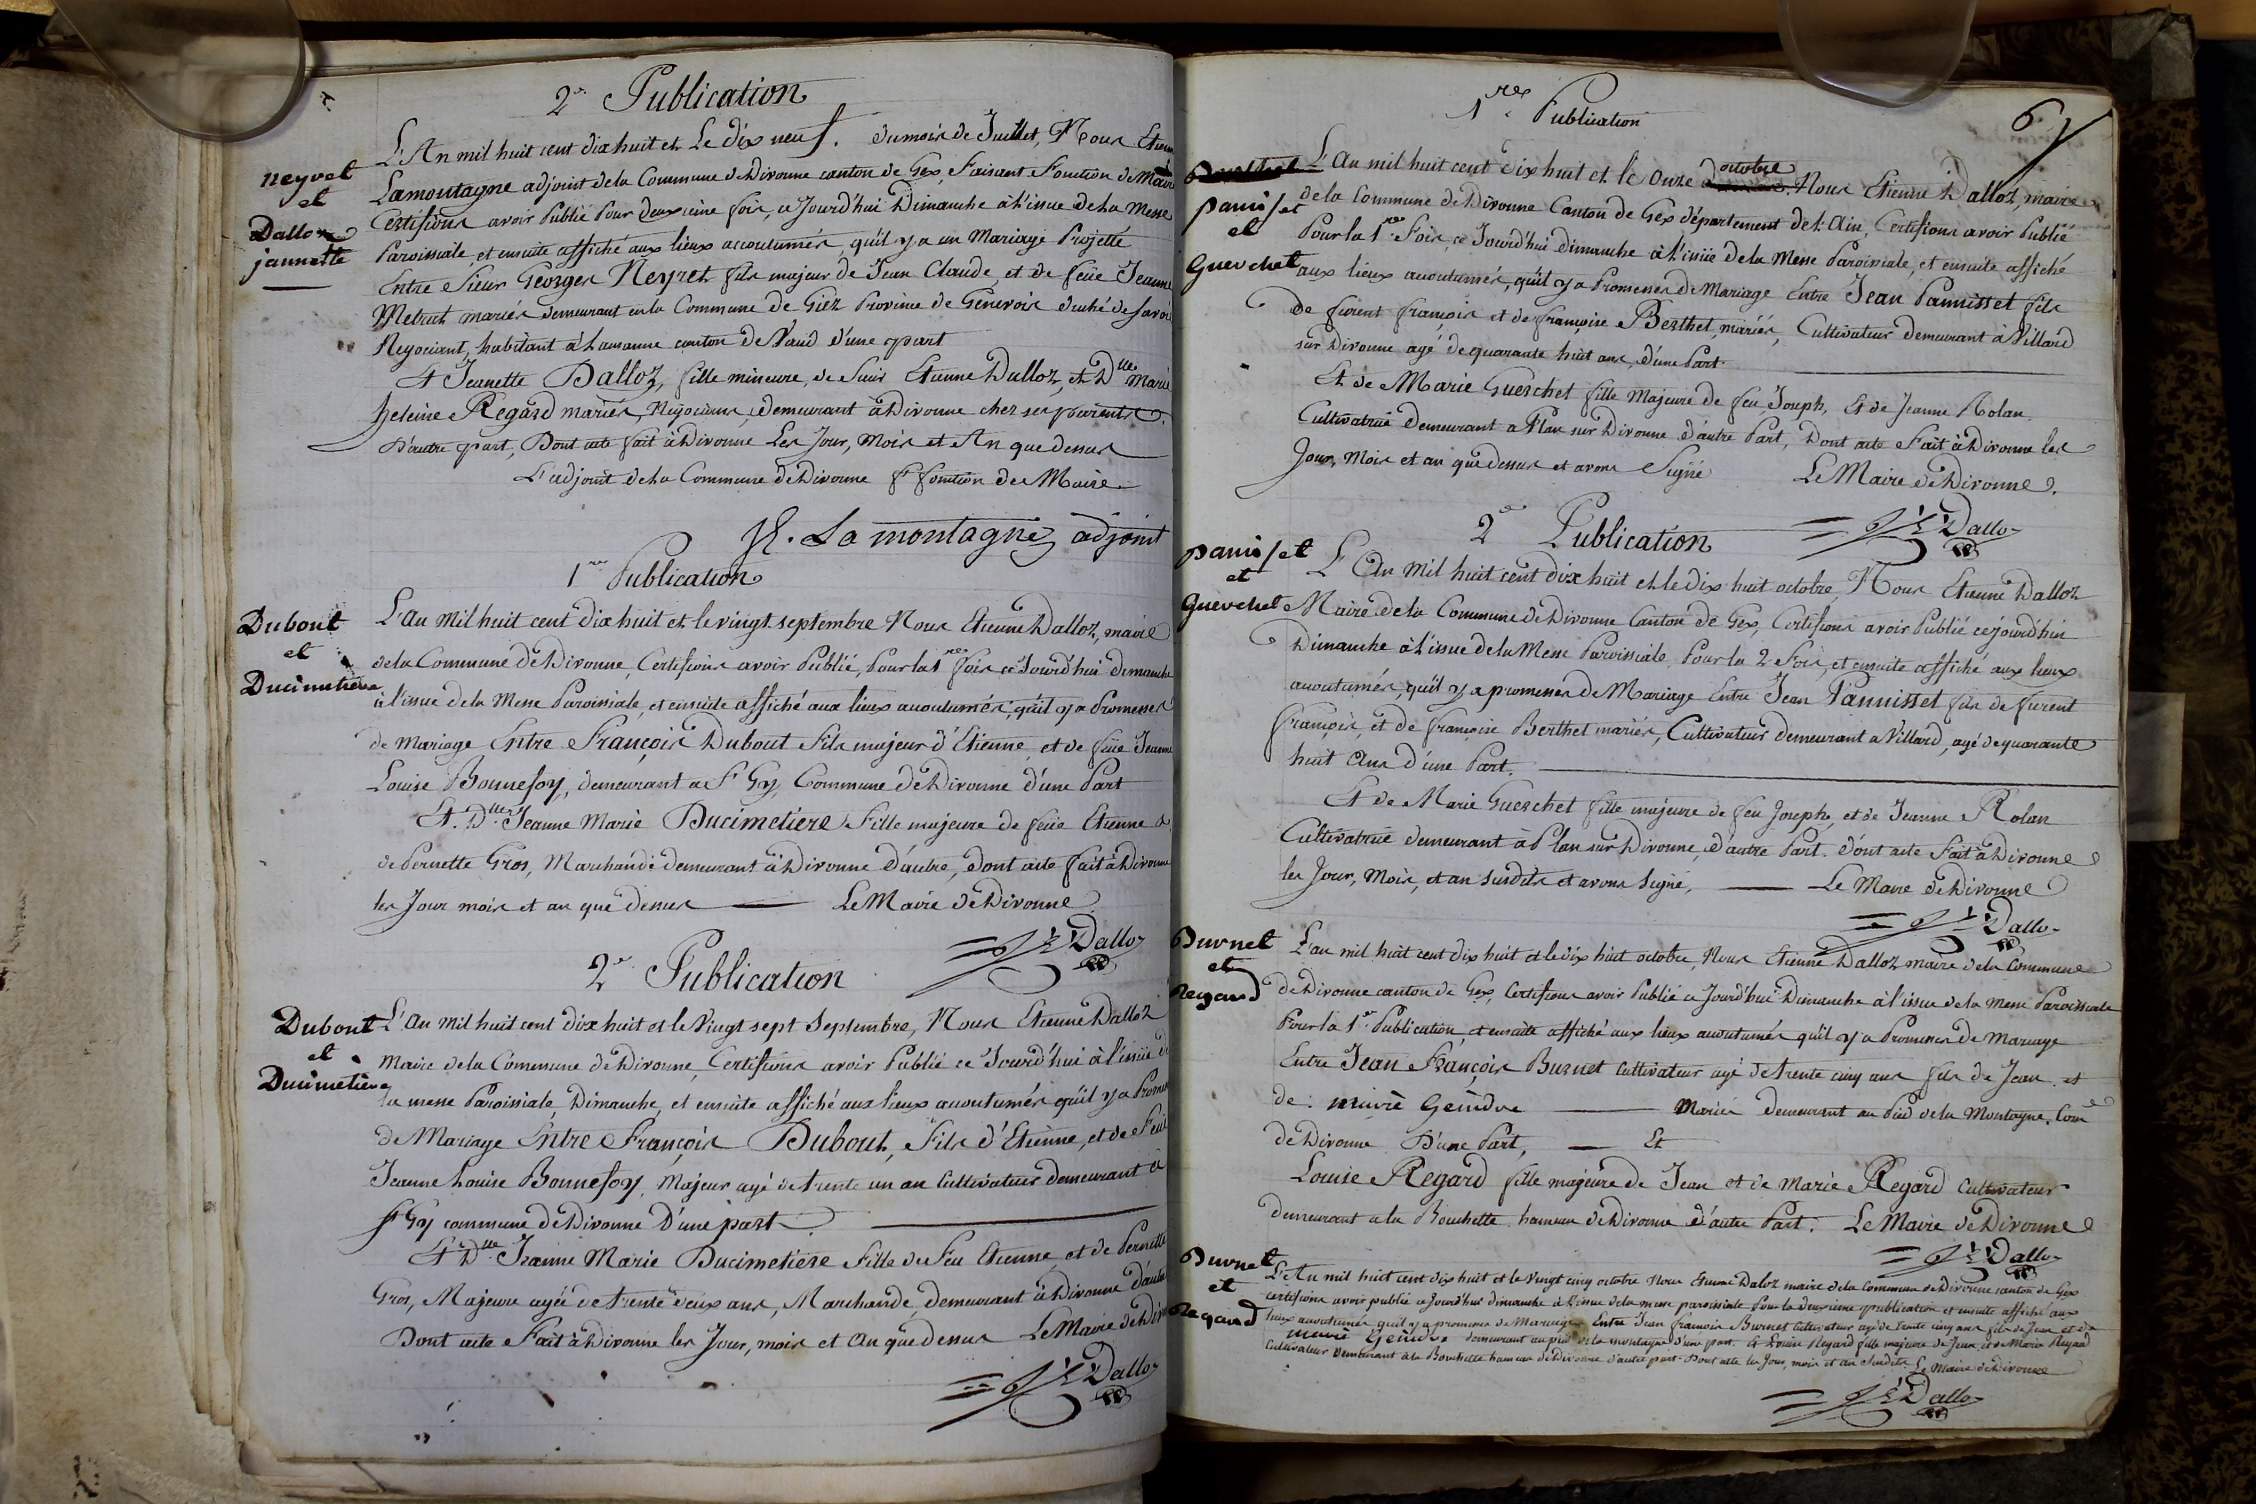 2e Publication
neyret
et
Dalloz
jannette
L'An mil huit cent dix huit et Le dix neuf. du mois de Juillet, Nous Etienne
Lamontagne adjoint de la Commune de Divonne canton de Gex, Faisant Fonction de Maire
Certifions avoir Publié Pour deuxieme fois, ce Jourd'hui Dimanche à l'issue de la Messe
Paroissiale, et ensuite affiché aux lieux accoutumés, qu'il y a un Mariage Projetté
Entre Sieur Georges Neyret fils majeur de Jean Claude, et de feüe Jeanne
Metrat mariés demeurant en la Commune de Giez Province de Genevois duché de Savoi
Negociant, habitant à Lausanne canton de Vaud d'une part
Et Jeanette Dalloz, fille mineure, de Sieur Etienne Dalloz, et Dlle Marie
heleine Regard mariés, Negocians, demeurant à Divonne chez ses parents.
D'autre part, Dont acte fait à Divonne Les Jour, Mois et An que dessus
L'adjoint de la Commune de Divonne ft fonction de Maire
Lamontagne adjoint
1re Publication
Dubout
et
Ducimetière
L'an Mil huit cent dix huit et le vingt septembre Nous Etienne Dalloz, maire
de la Commune de Divonne, Certifions avoir Publié, Pour la 1re fois ce Jourd'hui dimanche
à l'issue de la Messe Paroissiale, et ensuite affiché aux lieux accoutumés, qu'il y a Promesses
de Mariage Entre François Dubout fils majeur d'Etienne, et de feüe Jeanne
Louise Bonnefoy, demeurant a St Gy, Commune de Divonne d'une Part
Et. Dlle Jeanne Marie Ducimetiere Fille majeure de feüe Etienne &
de Pernette Gros, Marchande demeurant à Divonne D'autre, dont acte fait à Divonne
les Jour mois et an que dessus Le Maire de Divonne
Dalloz
2e Publication
Dubout
et
Ducimetière
L'An Mil huit cent dix huit et le Vingt sept Septembre, Nous Etienne Dalloz
Maire de la Commune de Divonne, Certifions avoir Publié ce Jourd'hui à l'issüe de
la messe Paroissiale, Dimanche, et ensuite affiché aux lieux accoutumés qu'il y a Prome
de Mariage Entre François Dubout, Fils d'Etienne, et de Feüe
Jeanne Louise Bonnefoy, Majeur agé de trente un an Cultivateur demeurant à
St Gy commune de Divonne D'une part
Et Dlle Jeanne Marie Ducimetiere Fille de Feu Etienne, et de Pernette
Gros, Majeure agée de trente deux ans, Marchande, demeurant à Divonne d'autre
Dont acte Fait à Divonne les Jour, mois et an que dessus Le Maire de Divo
Dalloz
1re Publication
6
panisset
et
Guerchet
L'An mil huit cent dix huit et le onze octobre, Nous Etienne Dalloz, maire
de la Commune de Divonne Canton de Gex département de l'Ain, Certifions avoir Publié
Pour la 1re Fois, ce Jourd'hui dimanche à l'issüe de la Messe Paroissiale, et ensuite affiché
aux lieux accoutumés, qu'il y a Promesses de Mariage Entre Jean Pannisset fils
de furent françois et de françoise Berthet, mariés, Cultivateur demeurant à Villard
sur Divonne agé de quarante huit ans, d'une Part.
Et de Marie Guerchet fille Majeure de feu Joseph, Et de Jeanne Rolan
Cultivatrice demeurant a Plan sur Divonne d'autre Part, Dont acte Fait à Divonne les
Jour, Mois et an que dessus et avons Signé Le Maire de Divonne.
Dalloz
2e Publication
panisset
et
Guerchet
L'An Mil huit cent dix huit et le dix huit octobre, Nous Etienne Dalloz
Maire de la Commune de Divonne Canton de Gex, Certifions avoir Publié ce jourd'hui
Dimanche à l'issue de la Messe Paroissiale, Pour la 2 Fois, et ensuite affiché aux lieux
accoutumés, qu'il y a promesses de Mariage Entre Jean Pannisset fils de furent
François, et de françoise Berthet mariés, Cultivateur demeurant a Villard, agé de quarante
huit Ans d'une Part.
Et de Marie Guerchet fille majeure de feu Joseph, et de Jeanne Rolan
Cultivatrice demeurant à Plan sur Divonne, d'autre Part. dont acte Fait à Divonne
les Jour, Mois, et an susdits et avons Signé, Le Maire de Divonne
Dalloz
Burnet
et
Regard
L'an mil huit cent dix huit et le dix huit octobre, Nous Etienne Dalloz maire de la Commune
de Divonne canton de Gex, Certifions avoir Publié ce Jourd'hui Dimanche à l'issue de la messe Paroissiale
Pour la 1er Publication, et ensuite affiché aux lieux accoutumés qu'il y a Promesses de Mariage
Entre Jean François Burnet Cultivateur agé de trente cinq ans fils de Jean et
de: Marie Geindre Mariés demeurant au Pied de la Montagne, Come
de Divonne D'une Part, Et
Louise Regard fille majeure de Jean et de Marie Regard Cultivateur
demeurant a la Bouchette hameau de Divonne d'autre Part. Le Maire de Divonne
Dalloz
Burnet
et
Regard
L'An mil huit cent dix huit et le vingt cinq octobre Nous Etienne Daloz maire de la Commune de Divonne canton de Gex
certifions avoir publié ce Jourd'hui dimanche à l'issue de la messe paroissiale Pour la deuxieme publication et ensuite affiché aux
lieux accoutumés qu'il y a promesses de Mariage Entre Jean françois Burnet Cultivateur agé de trente cinq ans fils de Jean et de
Marie Geindre demeurant au pied de la montagne d'une part. Et Louise Regard fille majeure de Jean et de Marie Regard
Cultivateur demeurant à la Bouchette hameau de Divonne d'autre part. Dont acte les Jour, mois et an Susdits Le Maire de Divonne
Dalloz